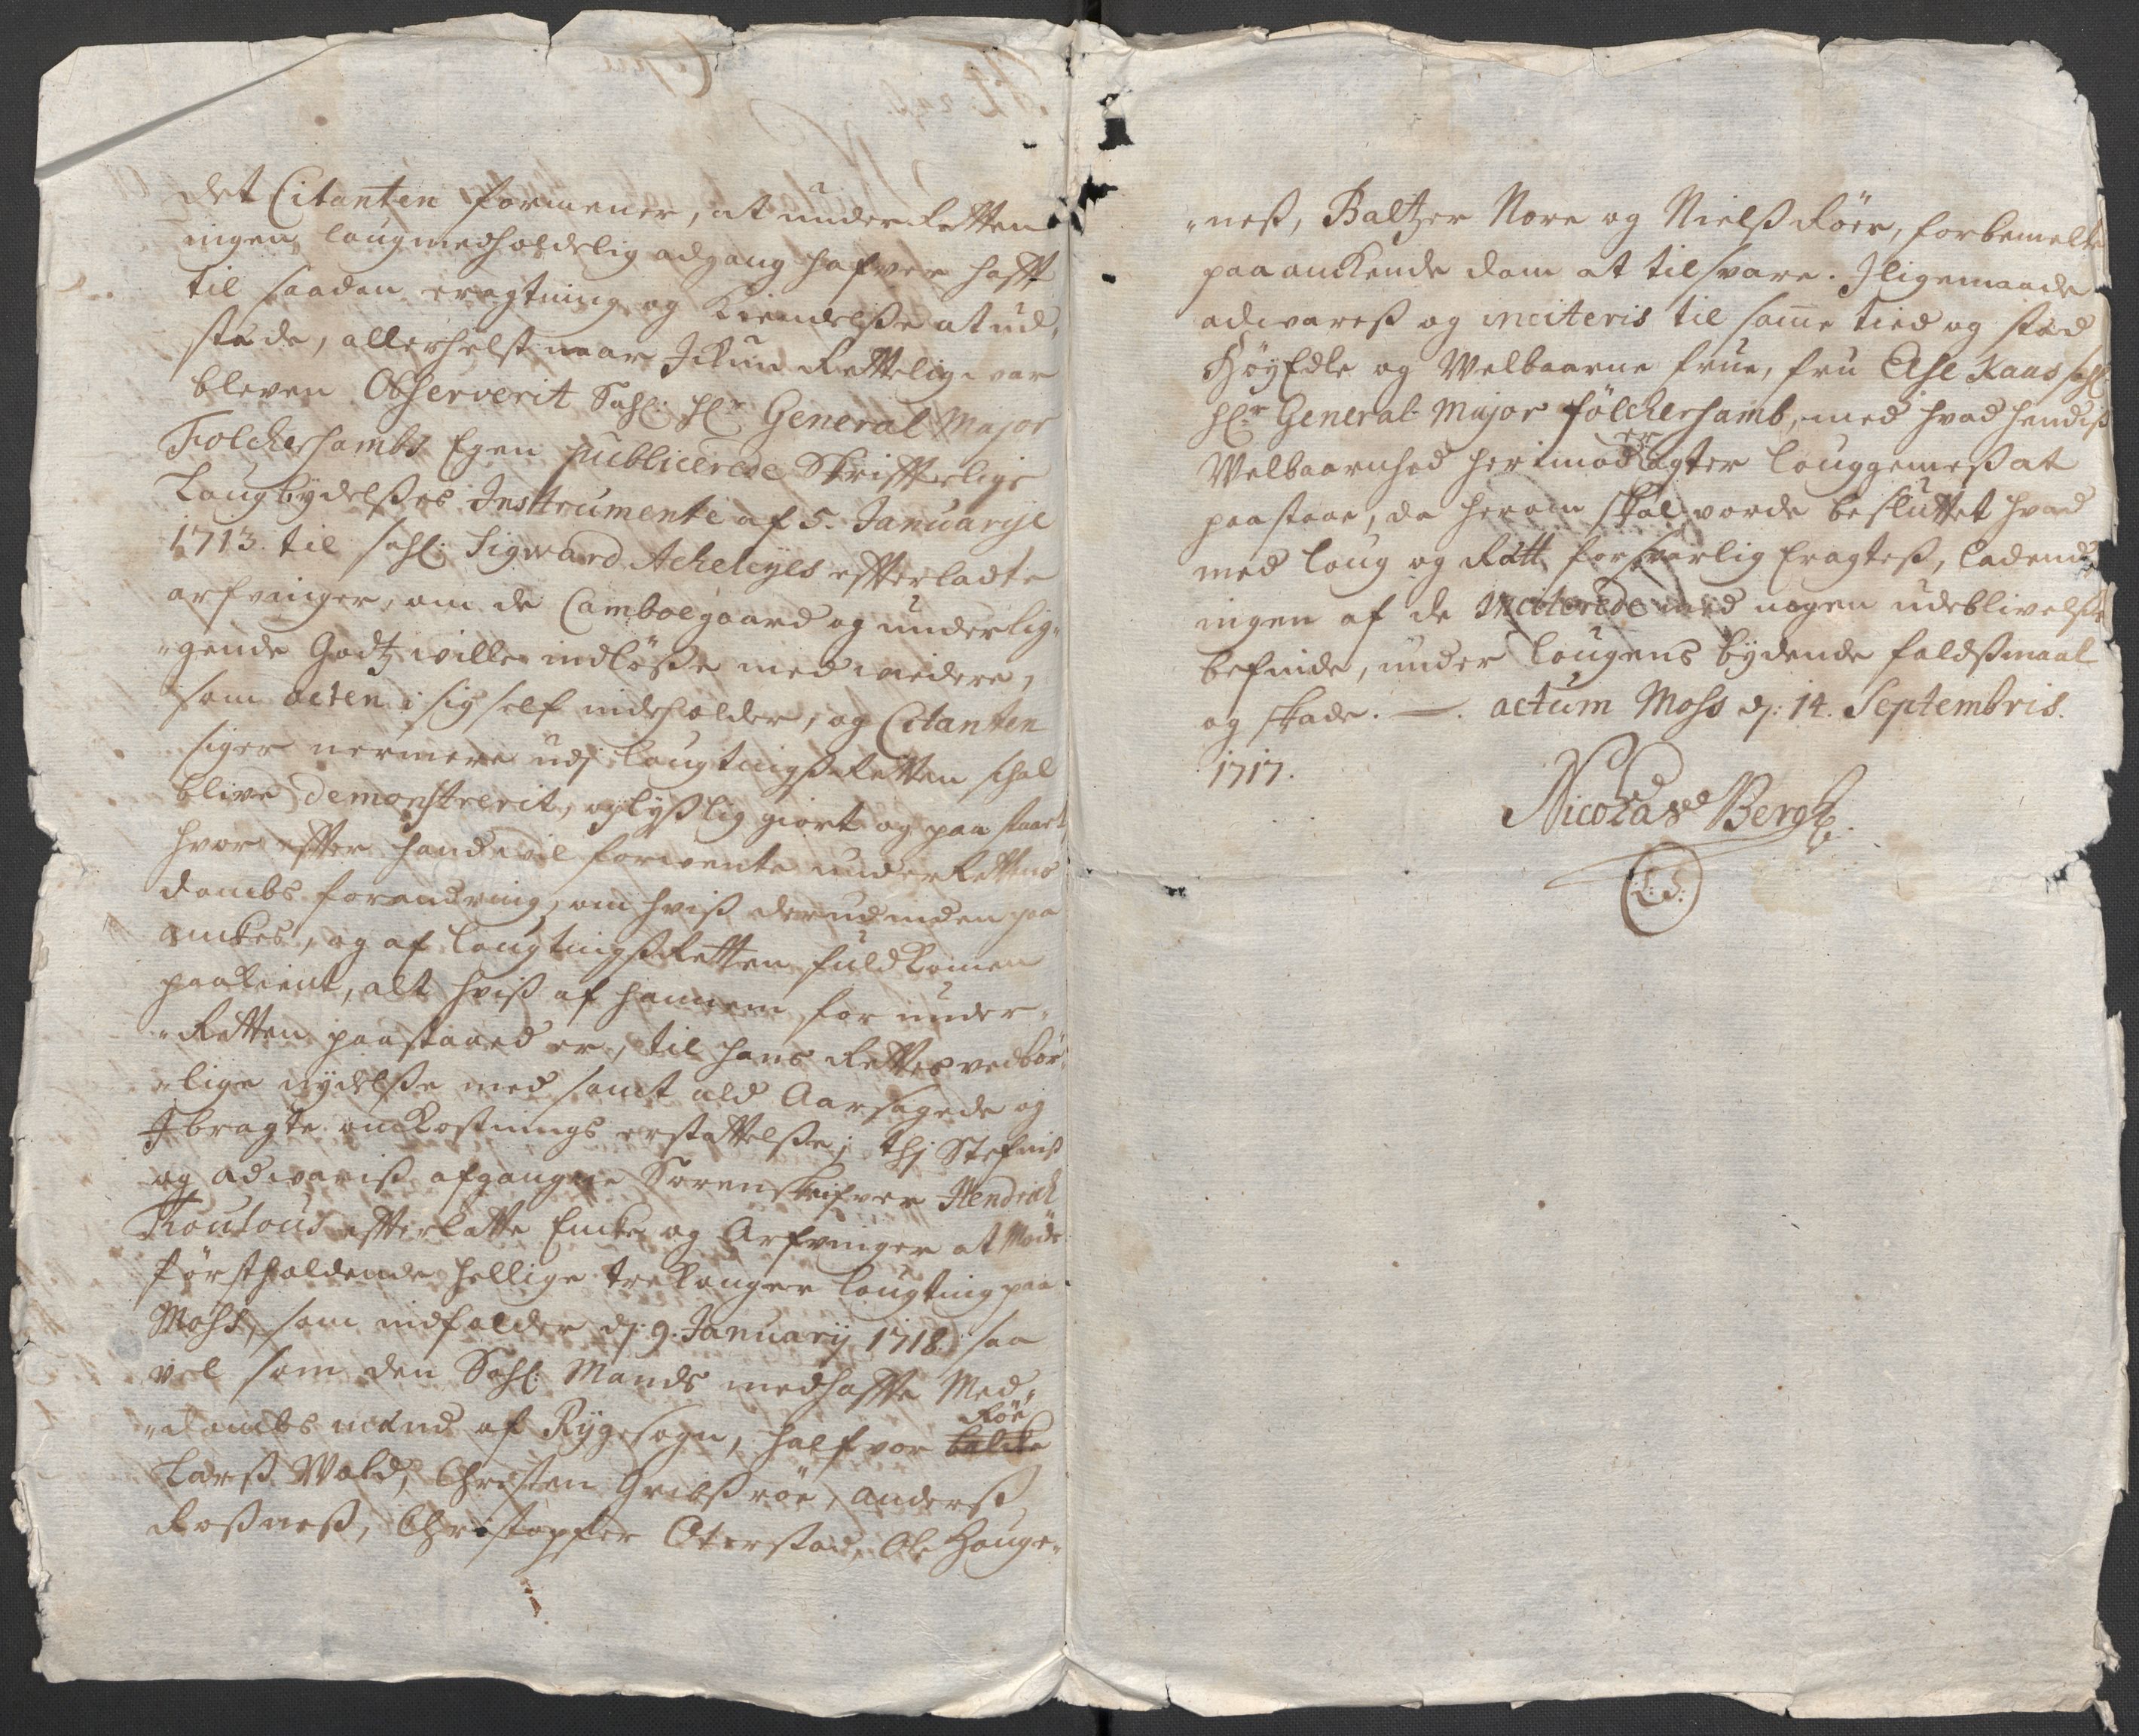 det Citanten formener, at under Retten
ingen laugmedholdelig adgang hafver hafft
til saadan eragtning og Kiendelsse at ud-
stæde, allerhelst naar Ickun Rettelig var
bleven Observerit Sahl: Hr General Major
Folckershambs Egen publicerede Skrifftelige
Laugbydelsses Instrumente af 5. Januarije
1713. til Sahl: Sigward Acheleyes efterladte
arfvinger, om de Camboegaard og underlig„
„gende Godtz wille indløsse med widere,
som acten i sig self indeholder, og Citanten
siger nermere udj laugtingsRetten schal
blive demonstrerit, oplysslig giort og paa staaet
hvor efter hand vil forwente underRettens
dombs forandring, om hviss derudinden paa
anckes, og af laugtingssRetten fuldkomen
paakient, alt hviss af hannem for under„
„Retten paastaaed er, til hans Rettes vedbør„
„lige nydelsse med samt ald Aarsagede og
Ibragte omkostnings erstattelsse; thj Stefniss
og adwariss afgangne Sorenskrifver Hendrich
Koulous efterlatte Encke og Arfvinger at Møde
førstholdende hellige tre konger laugting paa
Moss, som indfalder dj: 9. Januarij 1718. saa
vel som den Sahl: Mands medhaffte Med„
„dombs mænd af Rygesogn, Halfvor balcke Röe
Larss Wold, Christen Grilssröe, Anderss
Rossness, Christopffer Oterstad, Ole Hauge„
„ness, Baltzer Nore og Nielss Röer, forbemelte
paaanckende dom at tilsvare. Iligemaade
adwaress og inciteris til same tied og stæd
HøyEdle og Welbaarne frue, fru Else Kaas sahl:
Hr General Major fölckershamb, med hvad hendiss
Welbaarnhed herimod er agter lauggemess at
paastaae, da herom skal vorde besluttet hvad
med laug og Rætt forsvarlig Eragtess, ladende
ingen af de Inciterede med nogen udeblivelsse
befinde, under laugens bydende faldssmaal
og skade. —. actum Moss dj: 14. Septembris.
1717.
Nicolas Bergh
L.S.